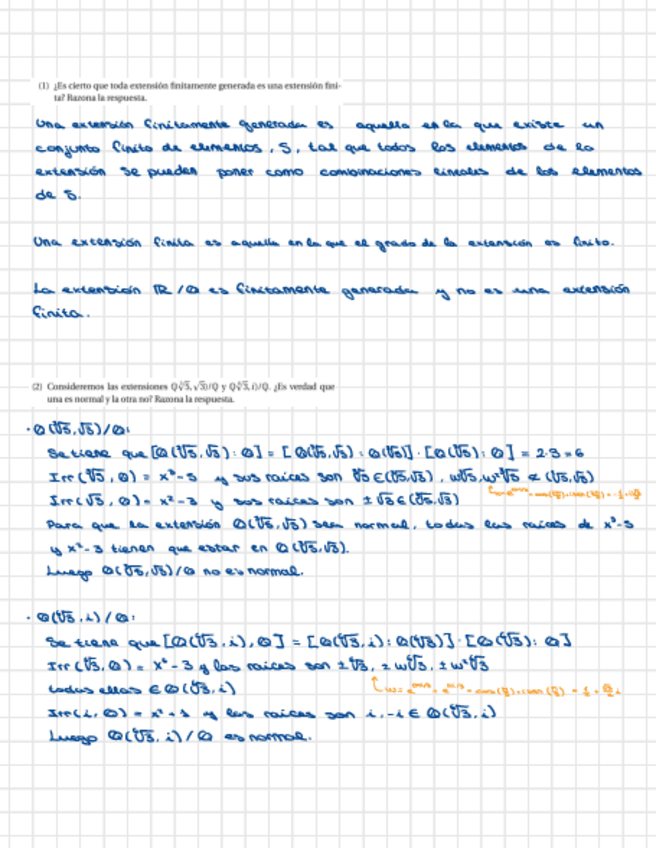 (1) ¿Es cierto que toda extensión finitamente generada es una extensión fini-
ta? Razona la respuesta.
Una extensión finitamente generada es aquella en la que existe un
conjunto finito de elementos, S, tal que todos los elementos de la
extensión se pueden poner como combinaciones lineales de los elementos
de S.
Una extensión finita es aquella en la que el grado de la extensión es finito.
La extensión ℝ/ℚ es finitamente generada y no es una extensión
finita.
(2) Consideremos las extensiones ℚ(∛5, √3)/ℚ y ℚ(⁶√3, i)/ℚ. ¿Es verdad que
una es normal y la otra no? Razona la respuesta.
· ℚ(∛5, √3)/ℚ:
Se tiene que [ℚ(∛5, √3) : ℚ] = [ℚ(∛5, √3) : ℚ(∛5)] · [ℚ(∛5) : ℚ] = 2·3 = 6
Irr(∛5, ℚ) = x³-5 y sus raíces son ∛5 ∈ (∛5, √3), ω∛5, ω²∛5 ∉ (∛5, √3)
Irr(√3, ℚ) = x²-3 y sus raíces son ±√3 ∈ (∛5, √3)
Para que la extensión ℚ(∛5, √3) sea normal, todas las raíces de x³-5
y x²-3 tienen que estar en ℚ(∛5, √3).
Luego ℚ(∛5, √3)/ℚ no es normal.
· ℚ(⁶√3, i)/ℚ:
Se tiene que [ℚ(⁶√3, i), ℚ] = [ℚ(⁶√3, i) : ℚ(⁶√3)] · [ℚ(⁶√3) : ℚ]
Irr(⁶√3, ℚ) = x⁶-3 y las raíces son ±⁶√3, ±ω⁶√3, ±ω²⁶√3
todas ellas ∈ ℚ(⁶√3, i)
Irr(i, ℚ) = x²+1 y las raíces son i, -i ∈ ℚ(⁶√3, i)
Luego ℚ(⁶√3, i)/ℚ es normal.